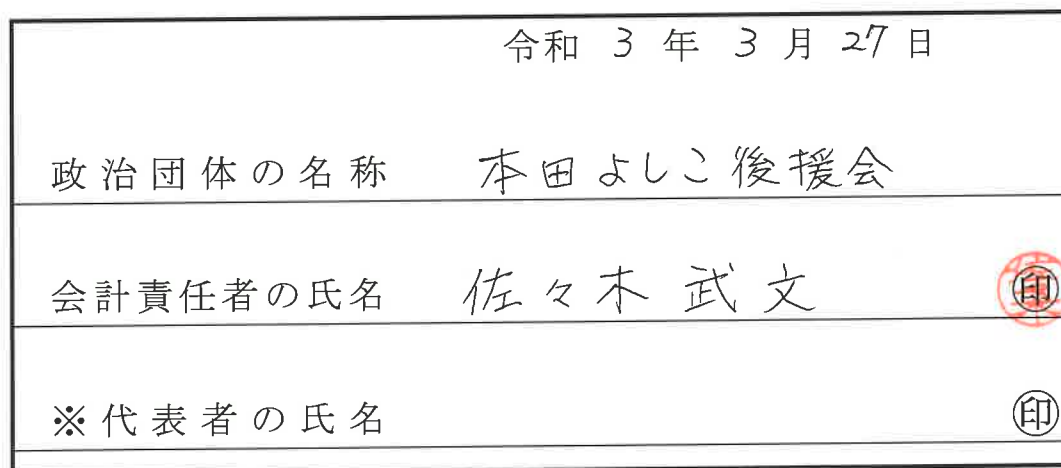 令和 3 年 3 月 27 日
政治団体の名称 本田よしこ後援会
会計責任者の氏名 佐々木 武文 ㊞
※代表者の氏名 ㊞